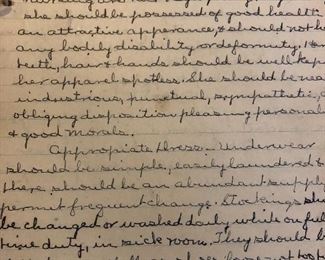 she should be possessed of good health
an attractive apperance, & should not ha
any bodily disability or deformity. Her
teeth, hair & hands should be well kept
her apparel spotless. She should be neat
industrious, punctual, sympathetic, a
obliging disposition pleasing personal
& good morals.
Appropriate Dress - Underwear
should be simple, easily laundered &
there, should be an abundant supply
permit frequent change. Stockings shou
be changed or washed daily while on full
time duty, in sick room. They should b